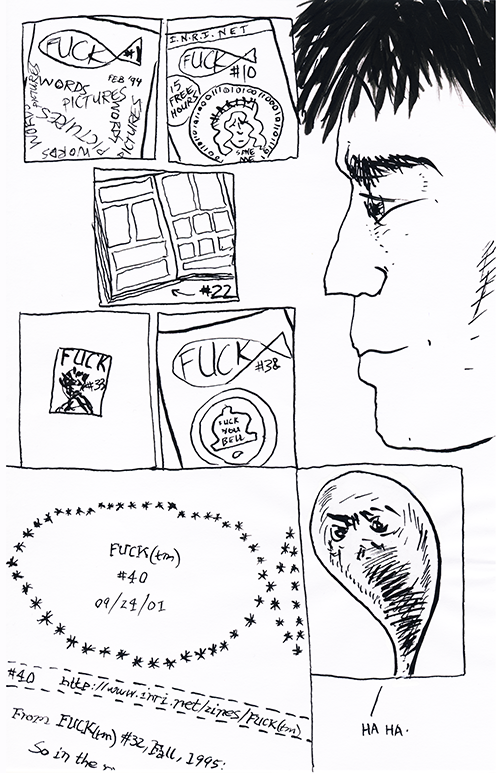 FUCK #1
FEB '94
WORDS
PICTURES
WORDS
PICTURES
PICTURES
WORDS
WORDS
I.N.R.I. NET
FUCK
#10
15
FREE
HOURS
#22
FUCK
#33
FUCK
#38
FUCK
YOU
BELL
FUCK(tm)
#40
09/24/01
#40 http://www.inri.net/zines/FUCK(tm)
From FUCK(tm) #32, Fall, 1995:
So in the
HA HA.